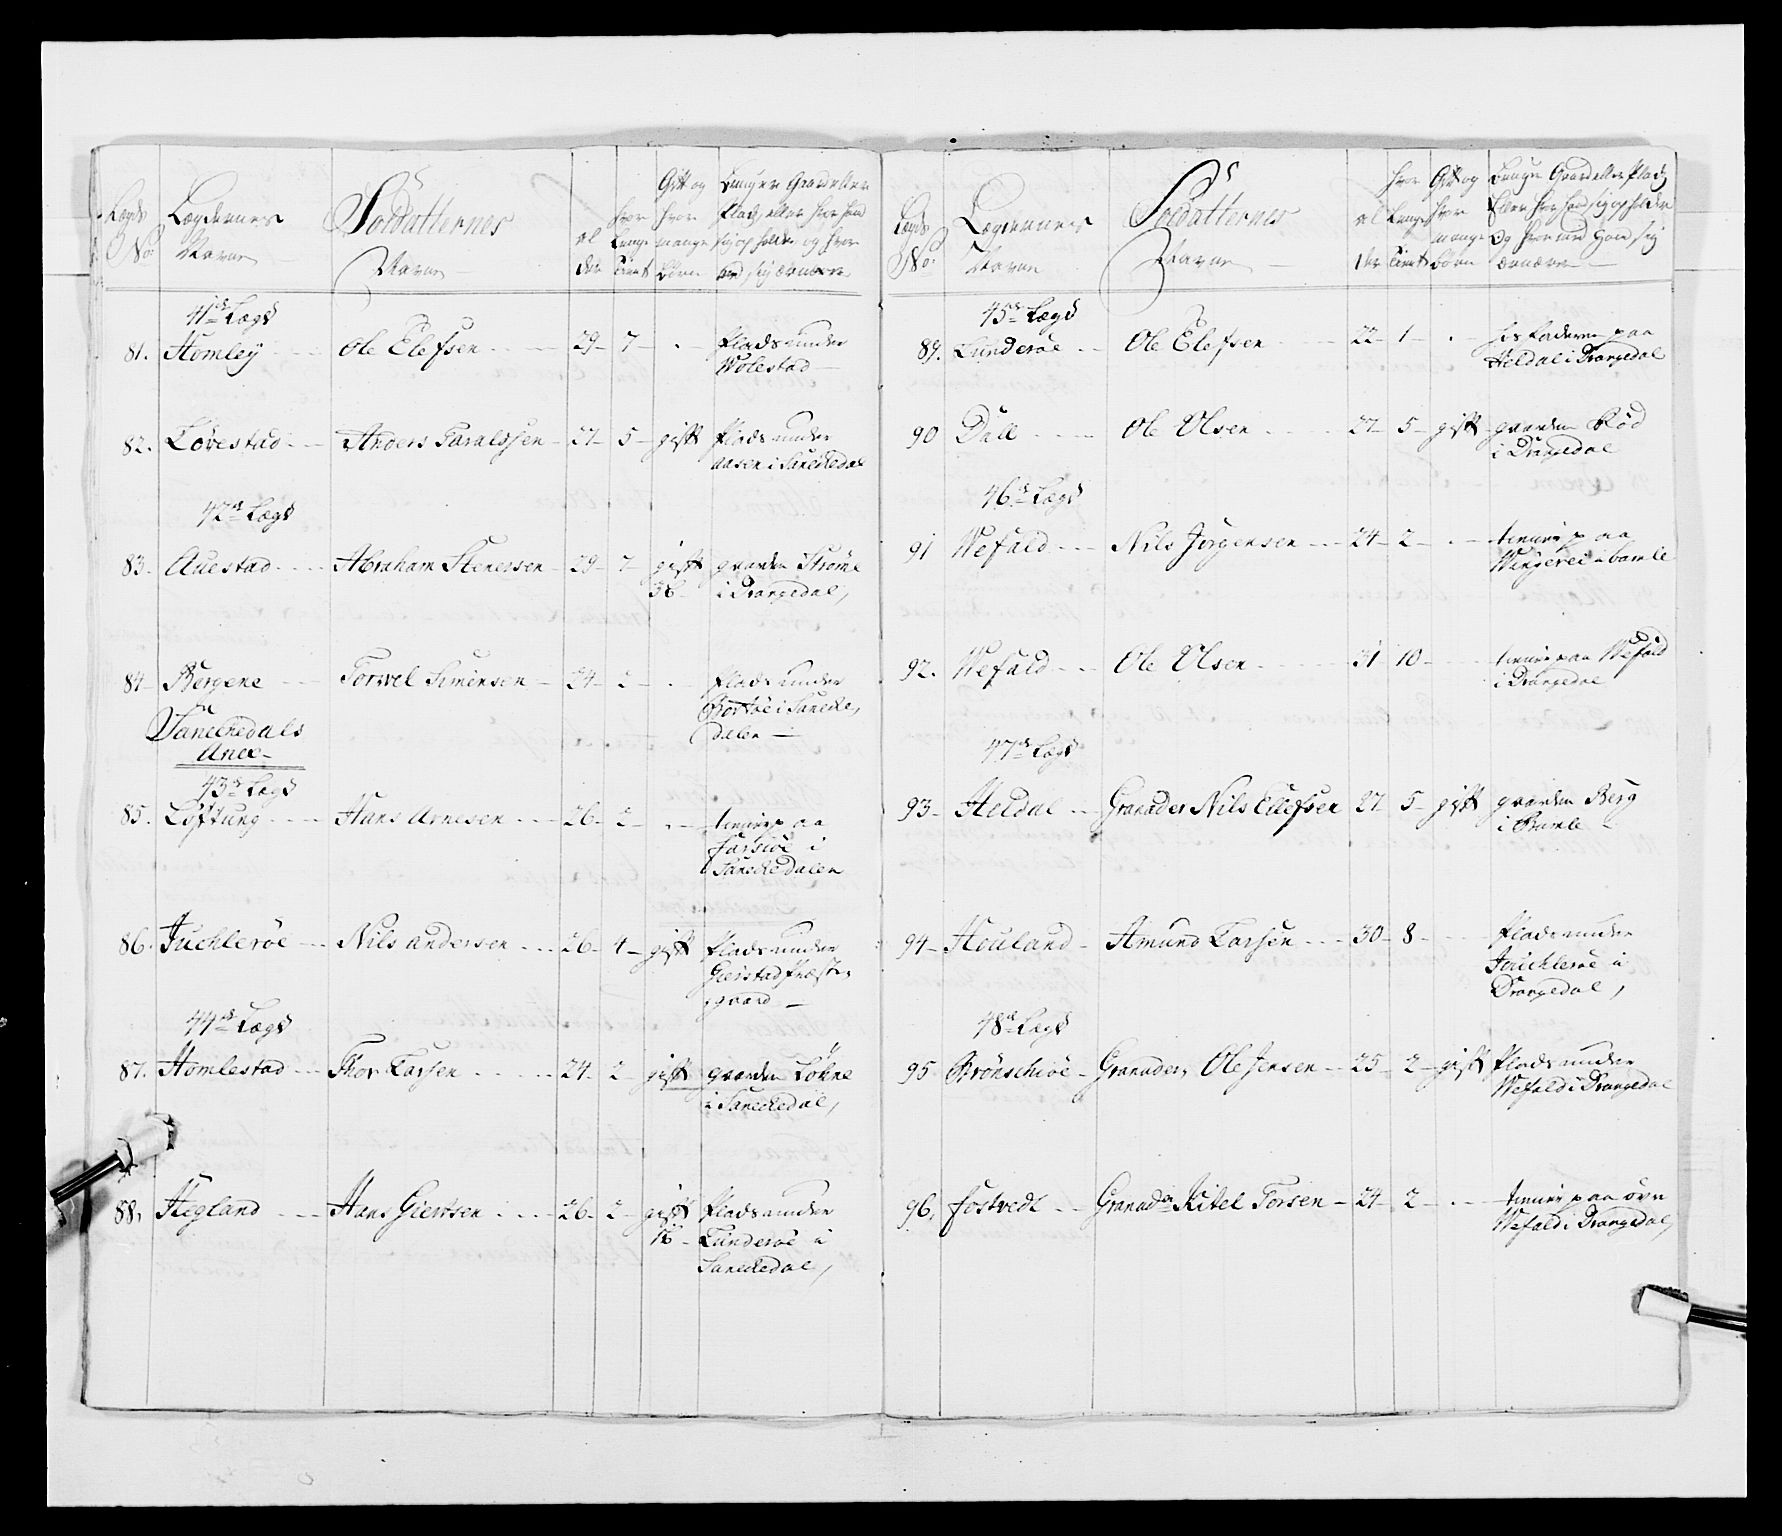 Lægds No: Lægdernes Navne Soldatternes Navne al der hvor Lenge tient Gift og hvor mange Børn
41de Lægd
81. Homley Ole Elefsen 29 7 Plads under
Wolestad
82. Lovestad Anders Taraldsen 27 5 gift Plads under
aasen i Sanckedal
42de Lægd
83. Auestad Abraham Stenersen 29 7 gift gaarden Strøme
3b i Drangedal,
84 Bergene Torvel Simensen 24 2 Plads under
i Sancke,
dalen
Sanckedals
Anex
43de Lægd
85. Løftung Hans Arnesen 26 2 tiener paa
Farsiøe i
Sanckedalen
86. Juchlerøe Nils andersen 26 4 gift Plads under
Gierstad Præste,
gaard
44de Lægd
87. Homlestad Thor Larsen 24 2 gift gaarden Løkne
i Sanckedal,
88, Hegland Hans Giertsen 26 2 gift Plads under
1b Lunderøe i
Sanckedal,
Lægds No: Lægdernes Navne Soldatternes Navne al der hvor Lenge tient Gift og hvor mange Børn
45de Lægd
89. Lunderøe Ole Elefsen 22 1 his Faderen paa
Heldal i Drangedal
90 Dall Ole Olsen 27 5 gift gaarden Rød
i Drangedal
46de Lægd
91 Wefald Nils Jørgensen 24 2 tiener paa
i bamle
92. Wefald Ole Olsen 31 10 tiener paa Wefald
i Drangedal
47de Lægd
93 Heldal Granader Nils Ellefsen 27 5 gift gaarden Berg
i Bamle
94 Houland Amund Larsen 30 8 Plads under
Jouchlerøe i
Drangedal,
48de Lægd
95 Brønschiøe Granader, Ole Jensen 25 2 gift Plads under
Wefald i Drangedal
96, Fostvedt Granader Kitel Torsen 24 2 tiener paa øvre
Wefald i Drangedal,